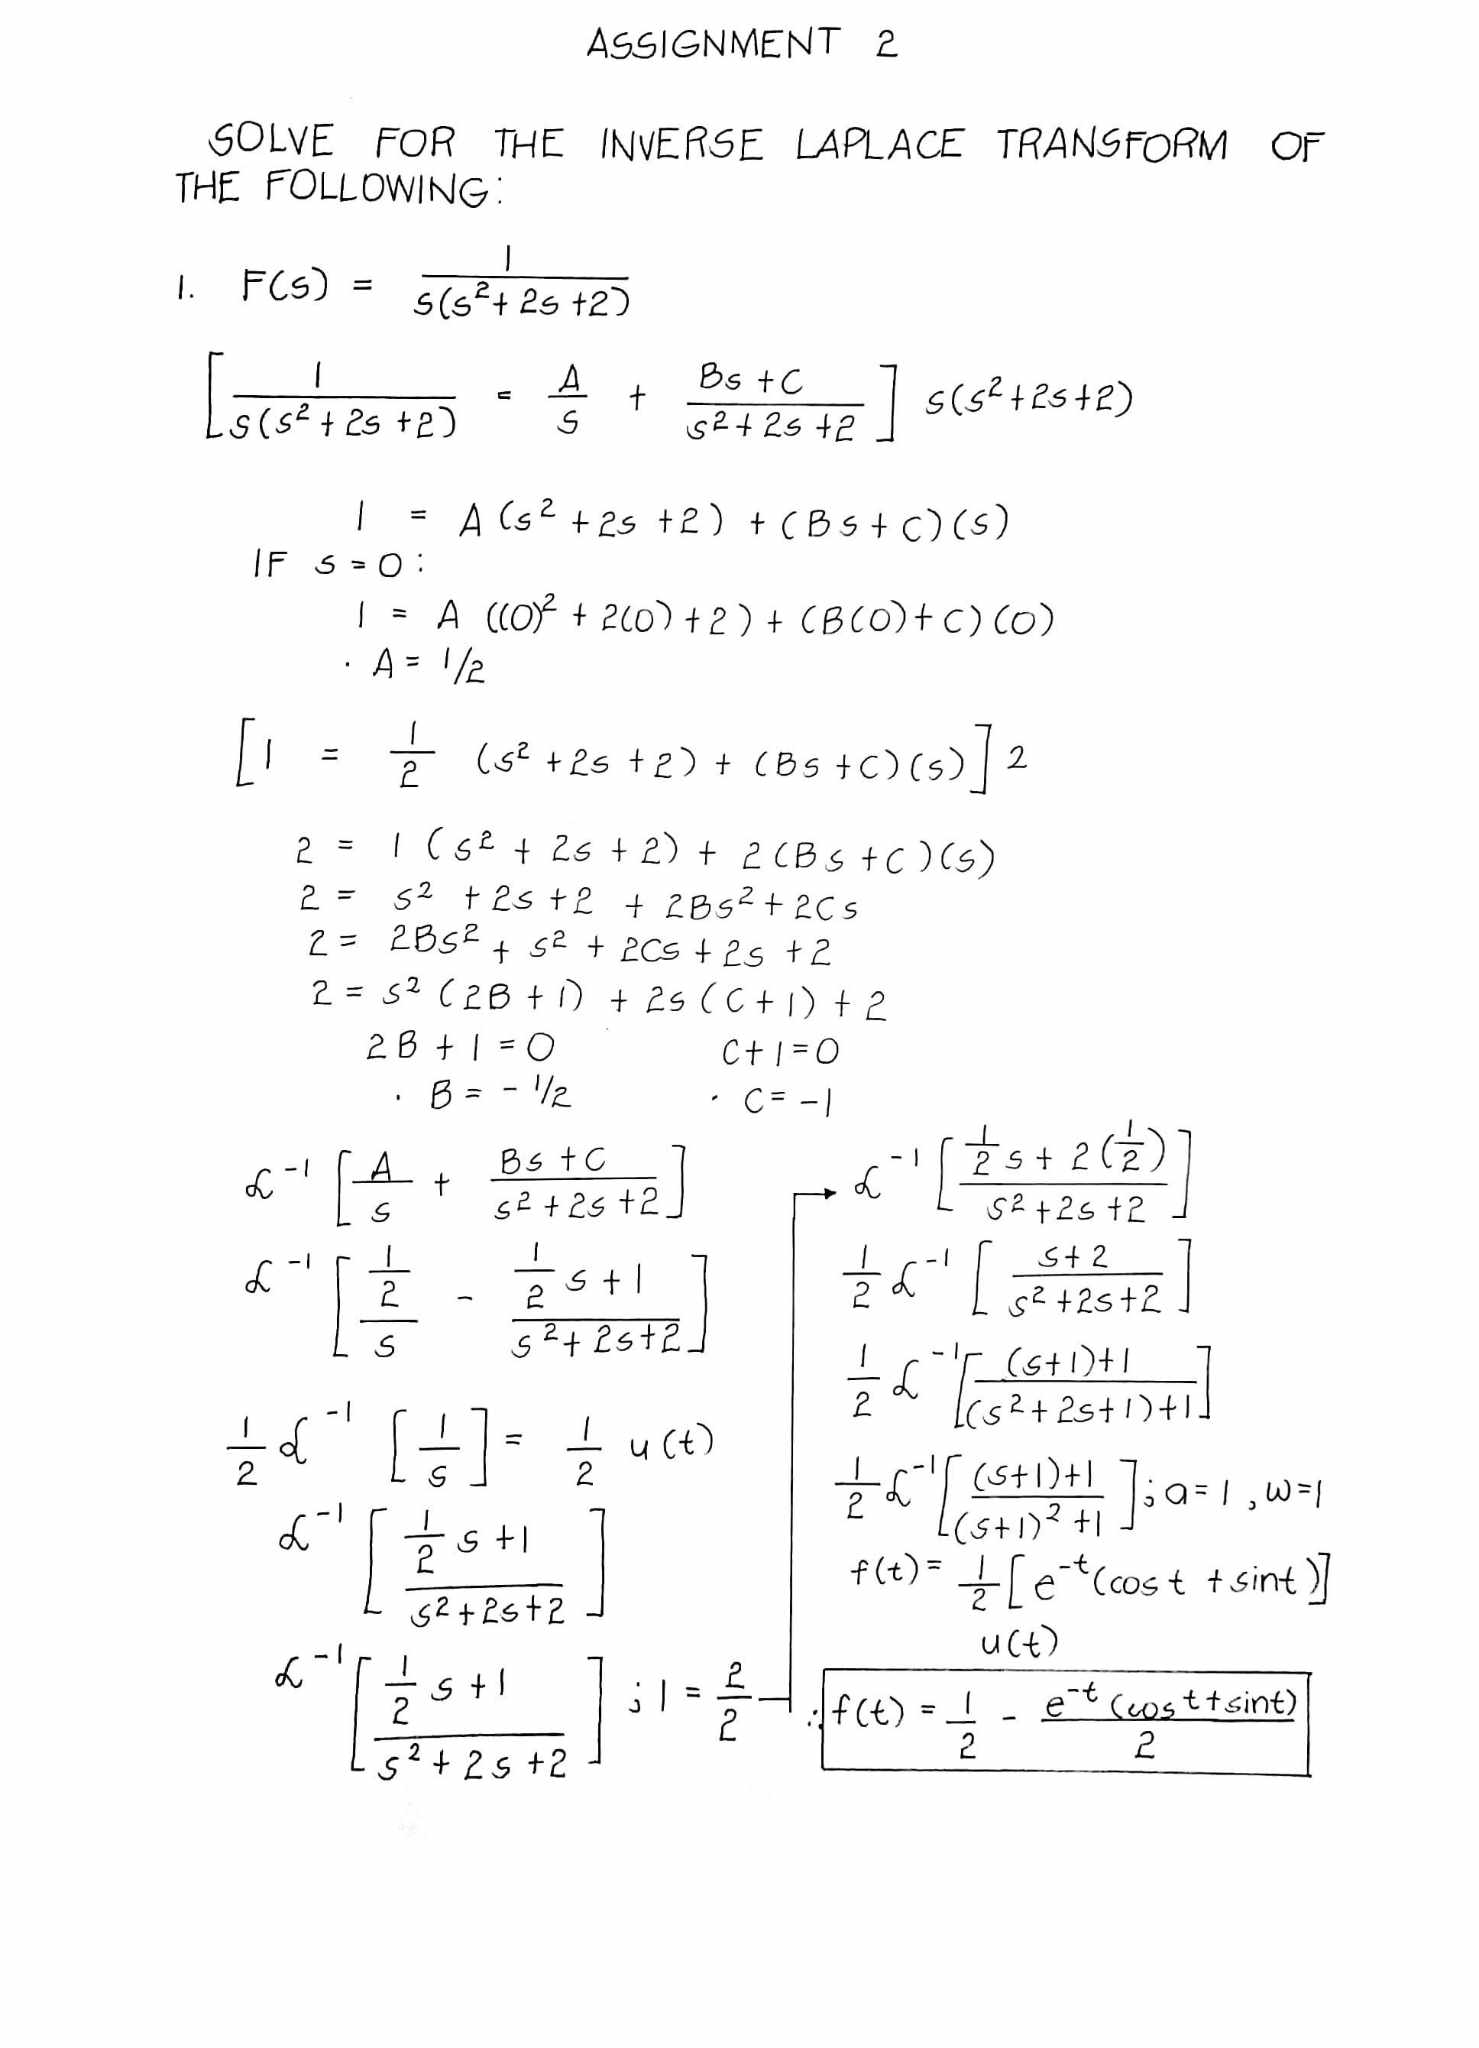 ASSIGNMENT 2
SOLVE FOR THE INVERSE LAPLACE TRANSFORM OF
THE FOLLOWING:
1. F(s) = 1 / s(s²+ 2s +2)
[ 1 / s(s² + 2s +2) = A / s + Bs +C / s²+ 2s +2 ] s(s²+2s+2)
1 = A (s² +2s +2) + (Bs + C)(s)
IF s = 0 :
1 = A ((0)² + 2(0) +2) + (B(0)+ C)(0)
· A = 1/2
[1 = 1/2 (s² +2s +2) + (Bs +C)(s)] 2
2 = 1 (s² + 2s + 2) + 2 (Bs +C)(s)
2 = s² + 2s +2 + 2Bs² + 2Cs
2 = 2Bs² + s² + 2Cs + 2s +2
2 = s² (2B + 1) + 2s (C + 1) + 2
2B + 1 = 0 C+1=0
· B = - 1/2 · C = -1
ℒ⁻¹ [ A / s + Bs +C / s² +2s +2 ]
ℒ⁻¹ [ 1/2 / s - 1/2 s +1 / s²+ 2s+2 ]
1/2 ℒ⁻¹ [ 1 / s ] = 1/2 u(t)
ℒ⁻¹ [ 1/2 s +1 / s²+2s+2 ]
ℒ⁻¹ [ 1/2 s +1 / s² + 2s +2 ] ; 1 = 2/2
ℒ⁻¹ [ 1/2 s + 2 (1/2) / s² +2s +2 ]
1/2 ℒ⁻¹ [ s+ 2 / s² +2s+2 ]
1/2 ℒ⁻¹ [ (s+1)+1 / (s²+ 2s+1)+1 ]
1/2 ℒ⁻¹ [ (s+1)+1 / (s+1)² +1 ] ; a=1 , w=1
f(t) = 1/2 [e⁻ᵗ (cos t + sint)]
u(t)
∴ f(t) = 1/2 - e⁻ᵗ (cos t+sint) / 2